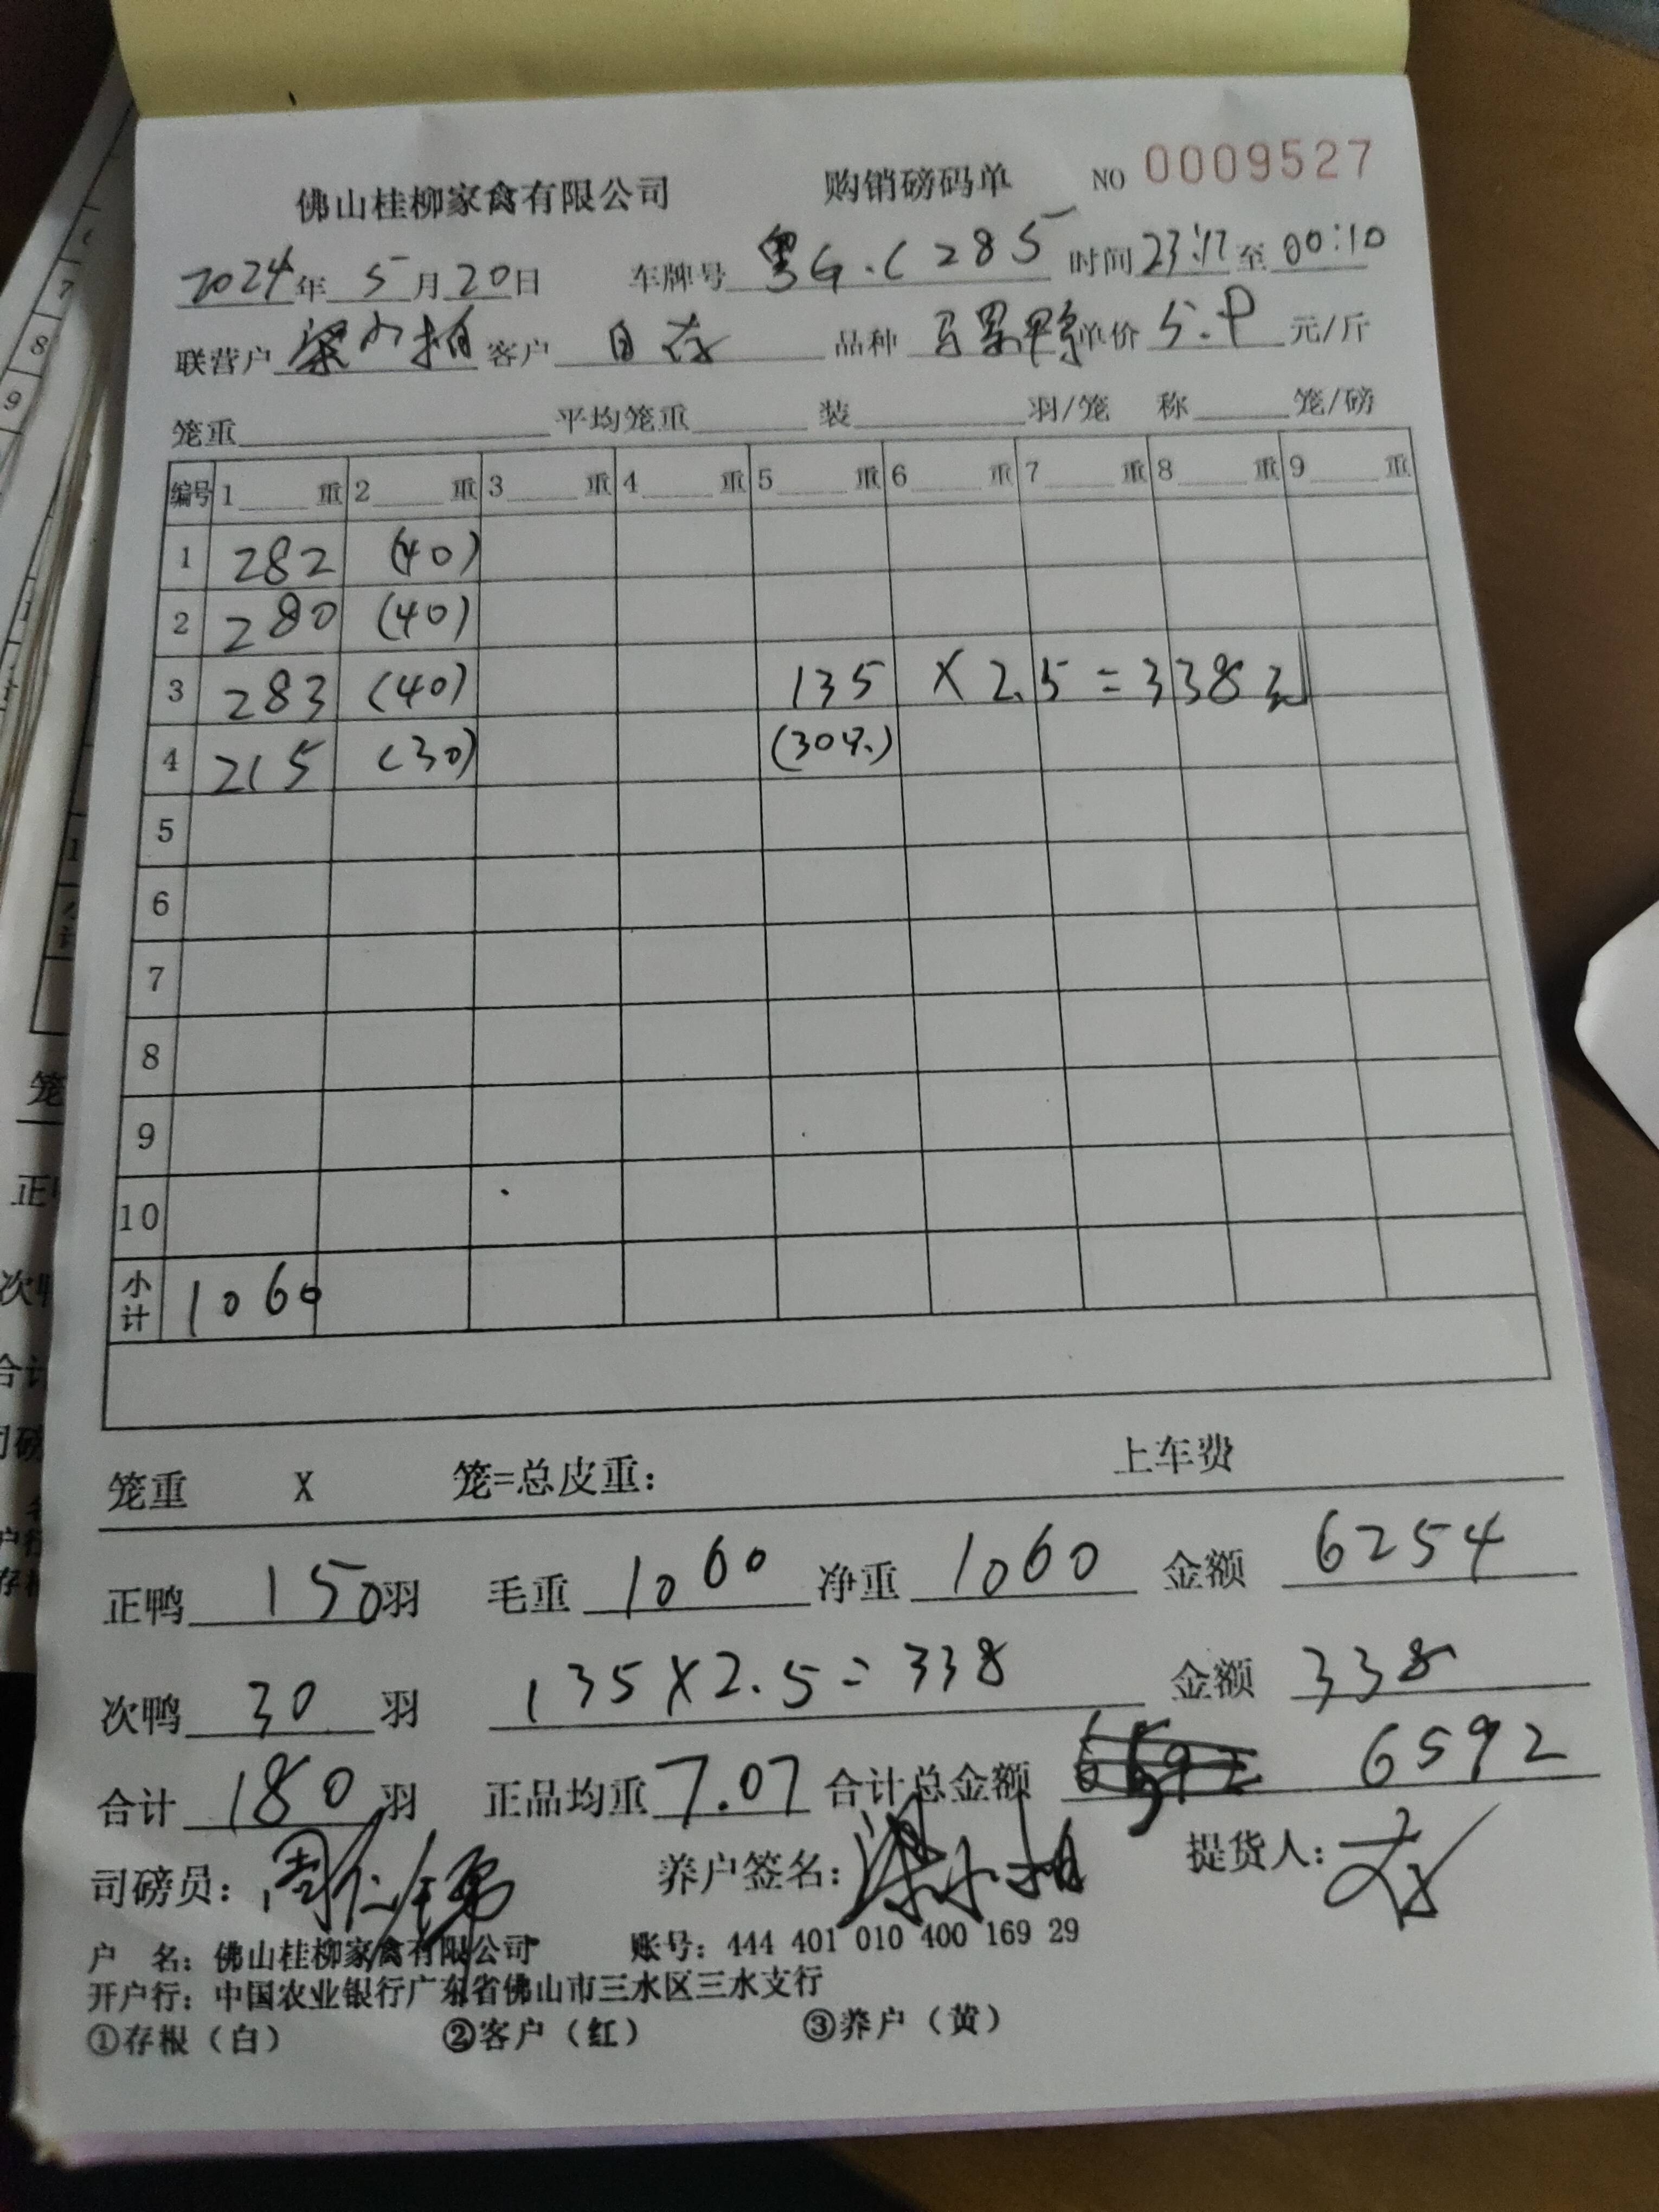 佛山桂柳家禽有限公司 购销磅码单 NO 0009527
2024年 5月20日 车牌号 粤G·C285 时间 23:17 至 00:10
联营户 梁小柏 客户 品种 单价 5.9 元/斤
笼重 平均笼重 装 羽/笼 称 笼/磅
编号 1 重 2 重 3 重 4 重 5 重 6 重 7 重 8 重 9 重
1 282 (40)
2 280 (40)
3 283 (40) 135 × 2.5 = 338元
4 215 (30) (30只)
5
6
7
8
9
10
小计 1060
笼重 X 笼=总皮重: 上车费
正鸭 150 羽 毛重 1060 净重 1060 金额 6254
次鸭 30 羽 135×2.5=338 金额 338
合计 180 羽 正品均重 7.07 合计总金额 6592
司磅员: 养户签名: 梁小柏 提货人:
户 名: 佛山桂柳家禽有限公司 账号: 444 401 010 400 169 29
开户行: 中国农业银行广东省佛山市三水区三水支行
①存根(白) ②客户(红) ③养户(黄)